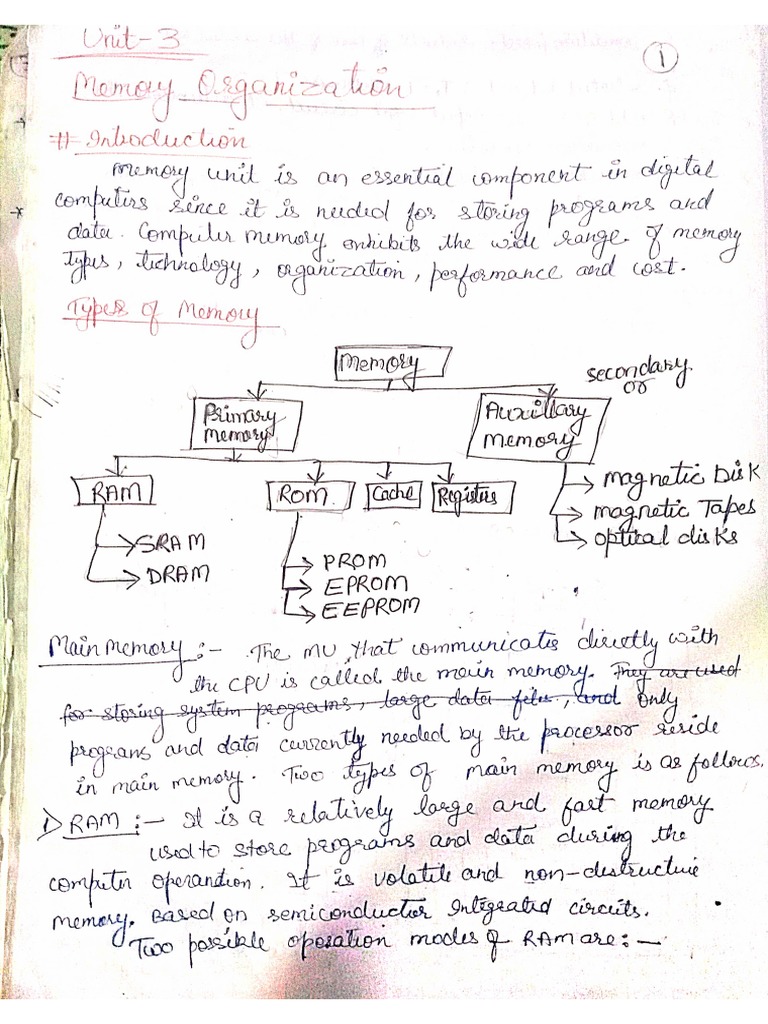 Unit-3
1
Memory Organization
# Introduction
Memory unit is an essential component in digital
computers since it is needed for storing programs and
data. Computer memory exhibits the wide range of memory
types, technology, organization, performance and cost.
Types of Memory
Memory
secondary
or
Primary
memory
Auxillary
memory
RAM
ROM
Cache
Registers
magnetic Disk
magnetic Tapes
optical disks
SRAM
DRAM
PROM
EPROM
EEPROM
Main memory :- The MU that communicates directly with
the CPU is called the main memory. They are used
for storing system programs, large data files, and only
programs and data currently needed by the processor reside
in main memory. Two types of main memory is as follows.
1) RAM :- It is a relatively large and fast memory
used to store programs and data during the
computer operandion. It is volatile and non-destructive
memory. Based on semiconductor Integrated circuits.
Two possible operation modes of RAM are :-